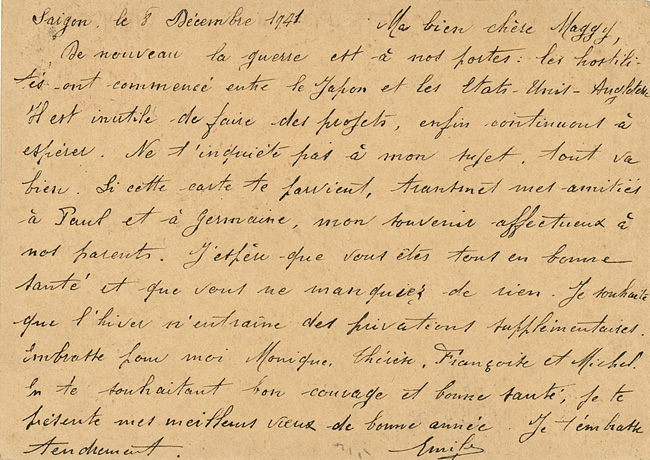 Saigon. le 8 Décembre 1941 Ma bien chère Maggy,
De nouveau la guerre est à nos portes : les hostili-
tés ont commencé entre le Japon et les Etats-Unis-Angleterre
Il est inutile de faire des projets, enfin continuons à
espérer. Ne t'inquiète pas à mon sujet, tout va
bien. Si cette carte te parvient, transmet mes amitiés
à Paul et à Germaine, mon souvenir affectueux à
nos parents. J'espère que vous êtes tous en bonne
santé et que vous ne manquiez de rien. Je souhaite
que l'hiver n'entraîne des privations supplémentaires.
Embrasse pour moi Monique, Thérèse, Françoise et Michel.
En te souhaitant bon courage et bonne santé, je te
présente mes meilleurs vœux de bonne année. Je t'embrasse
tendrement. Emile